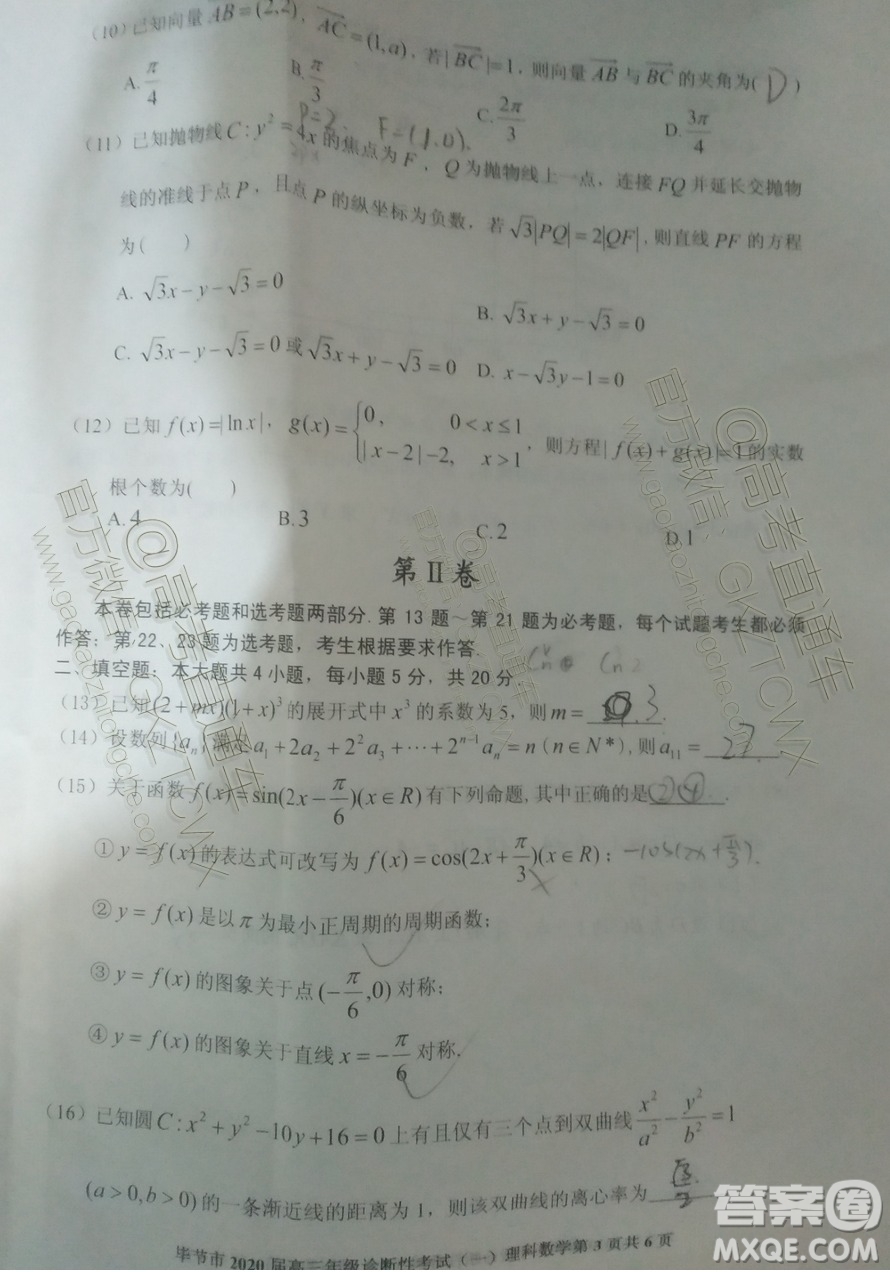 (10) 已知向量 AB=(2,2), AC=(1,a), 若|BC|=1, 则向量 AB 与 BC 的夹角为( D )
A. π/4 B. π/3 C. 2π/3 D. 3π/4
P=2. F=(1,0).
(11) 已知抛物线 C: y²=4x 的焦点为 F, Q 为抛物线上一点, 连接 FQ 并延长交抛物
线的准线于点 P, 且点 P 的纵坐标为负数, 若 √3|PQ|=2|QF|, 则直线 PF 的方程
为( )
A. √3x-y-√3=0 B. √3x+y-√3=0
C. √3x-y-√3=0 或 √3x+y-√3=0 D. x-√3y-1=0
(12) 已知 f(x)=|ln x|, g(x)={0, 0<x≤1; |x-2|-2, x>1, 则方程|f(x)+g(x)|=1的实数
根个数为( )
A. 4 B. 3 C. 2 D. 1
第 II 卷
本卷包括必考题和选考题两部分. 第 13 题~第 21 题为必考题, 每个试题考生都必须
作答; 第 22、23 题为选考题, 考生根据要求作答.
二、填空题: 本大题共 4 小题, 每小题 5 分, 共 20 分.
(13) 已知(2+mx)(1+x)³的展开式中 x³ 的系数为 5, 则 m= 3.
(14) 设数列{aₙ}满足 a₁+2a₂+2²a₃+⋯+2ⁿ⁻¹aₙ=n (n∈N*), 则 a₁₁=
(15) 关于函数 f(x)=sin(2x-π/6)(x∈R) 有下列命题, 其中正确的是 ②④.
① y=f(x)的表达式可改写为 f(x)=cos(2x+π/3)(x∈R); -cos(2x+π/3).
② y=f(x) 是以 π 为最小正周期的周期函数;
③ y=f(x) 的图象关于点 (-π/6,0) 对称;
④ y=f(x) 的图象关于直线 x=-π/6 对称.
(16) 已知圆 C: x²+y²-10y+16=0 上有且仅有三个点到双曲线 x²/a²-y²/b²=1
(a>0,b>0) 的一条渐近线的距离为 1, 则该双曲线的离心率为
毕节市 2020 届高三年级诊断性考试（一）理科数学第 3 页共 6 页
@高考直通车
官方微信: GKZTCWX
www.gaokzhitongche.com
@高考直通车
官方微信: GKZTCWX
答案圈
MXQE.COM